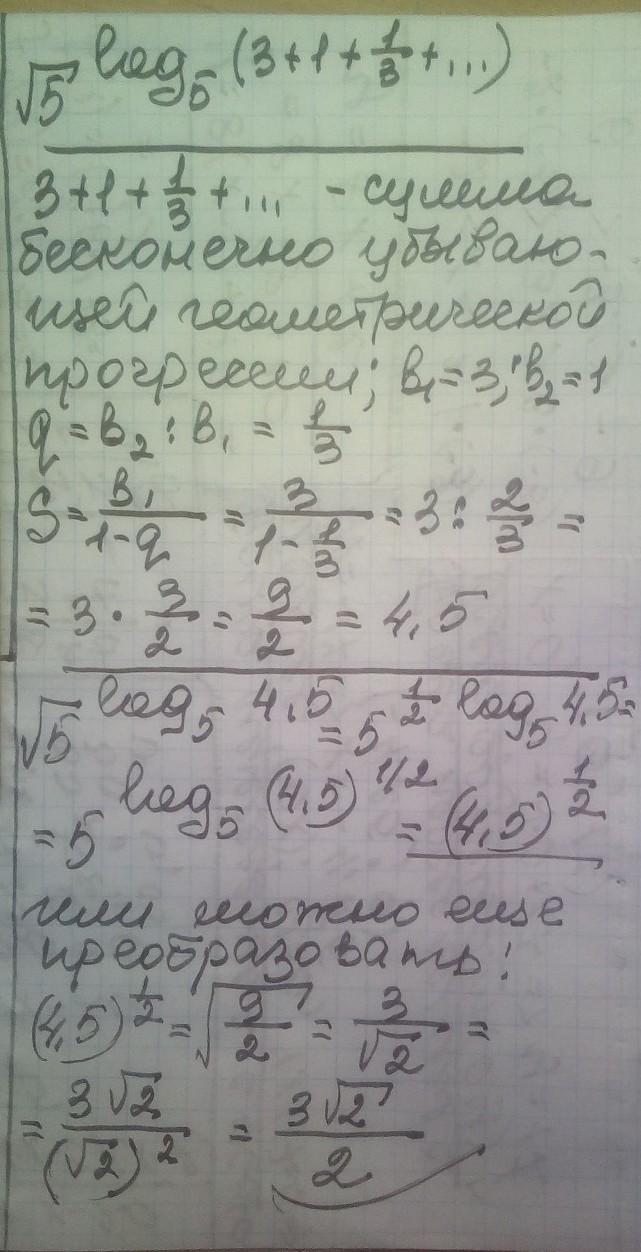 √5^(log₅(3+1+1/3+...))
3+1+1/3+... - сумма
бесконечно убываю-
щей геометрической
прогрессии; в₁=3; в₂=1
q = в₂ : в₁ = 1/3
S = в₁/(1-q) = 3/(1-1/3) = 3 : 2/3 =
= 3 · 3/2 = 9/2 = 4,5
√5^(log₅ 4,5) = 5^(1/2 log₅ 4,5) =
= 5^(log₅ (4,5)^(1/2)) = (4,5)^(1/2)
или можно еще
преобразовать:
(4,5)^(1/2) = √(9/2) = 3/√2 =
= 3√2/(√2)² = 3√2/2